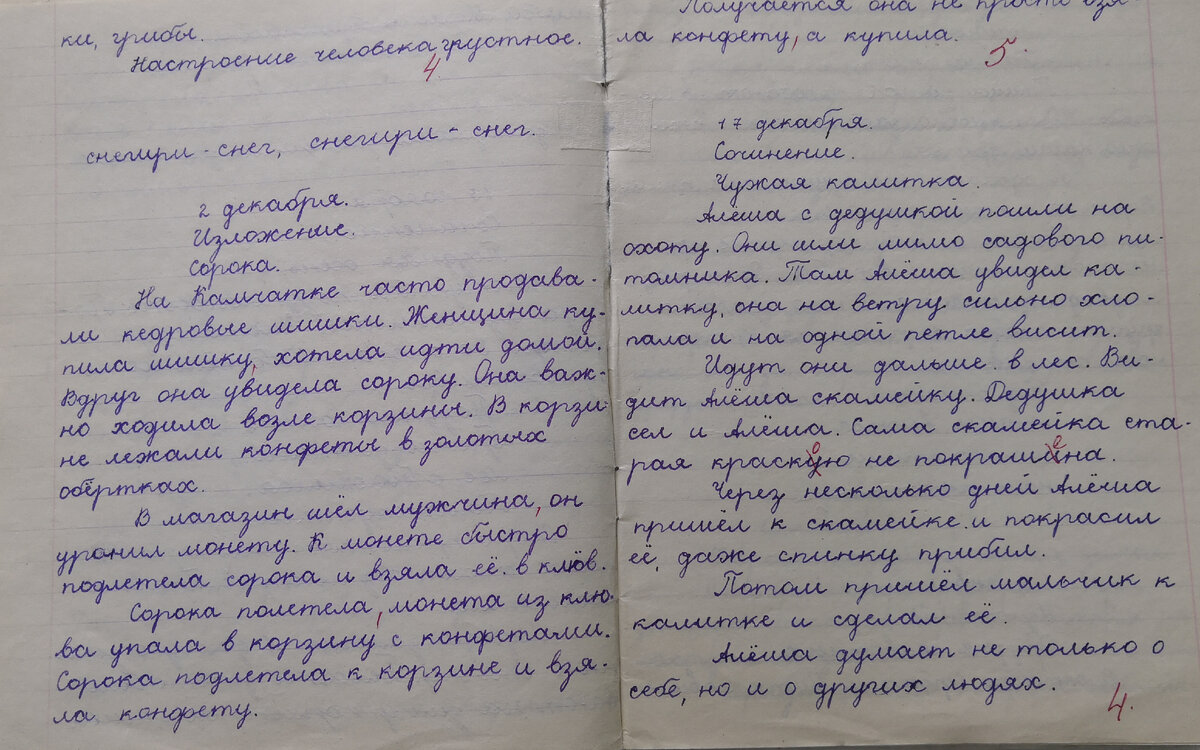 ки, грибы.
Настроение человека грустное.
4.
снегири - снег, снегири - снег.
2 декабря.
Изложение.
Сорока.
На Камчатке часто продава-
ли кедровые шишки. Женщина ку-
пила шишку, хотела идти домой.
Вдруг она увидела сороку. Она важ-
но ходила возле корзины. В корзи-
не лежали конфеты в золотых
обёртках.
В магазин шёл мужчина, он
уронил монету. К монете быстро
подлетела сорока и взяла её в клюв.
Сорока полетела, монета из клю-
ва упала в корзину с конфетами.
Сорока подлетела к корзине и взя-
ла конфету.
Получается она не просто взя-
ла конфету, а купила.
5.
17 декабря.
Сочинение.
Чужая калитка.
Алёша с дедушкой пошли на
охоту. Они шли мимо садового пи-
томника. Там Алёша увидел ка-
литку, она на ветру сильно хло-
пала и на одной петле висит.
Идут они дальше в лес. Ви-
дит Алёша скамейку. Дедушка
сел и Алёша. Сама скамейка ста-
рая краскою не покрашена.
Через несколько дней Алёша
пришёл к скамейке и покрасил
её, даже спинку прибил.
Потом пришёл мальчик к
калитке и сделал её.
Алёша думает не только о
себе, но и о других людях.
4.